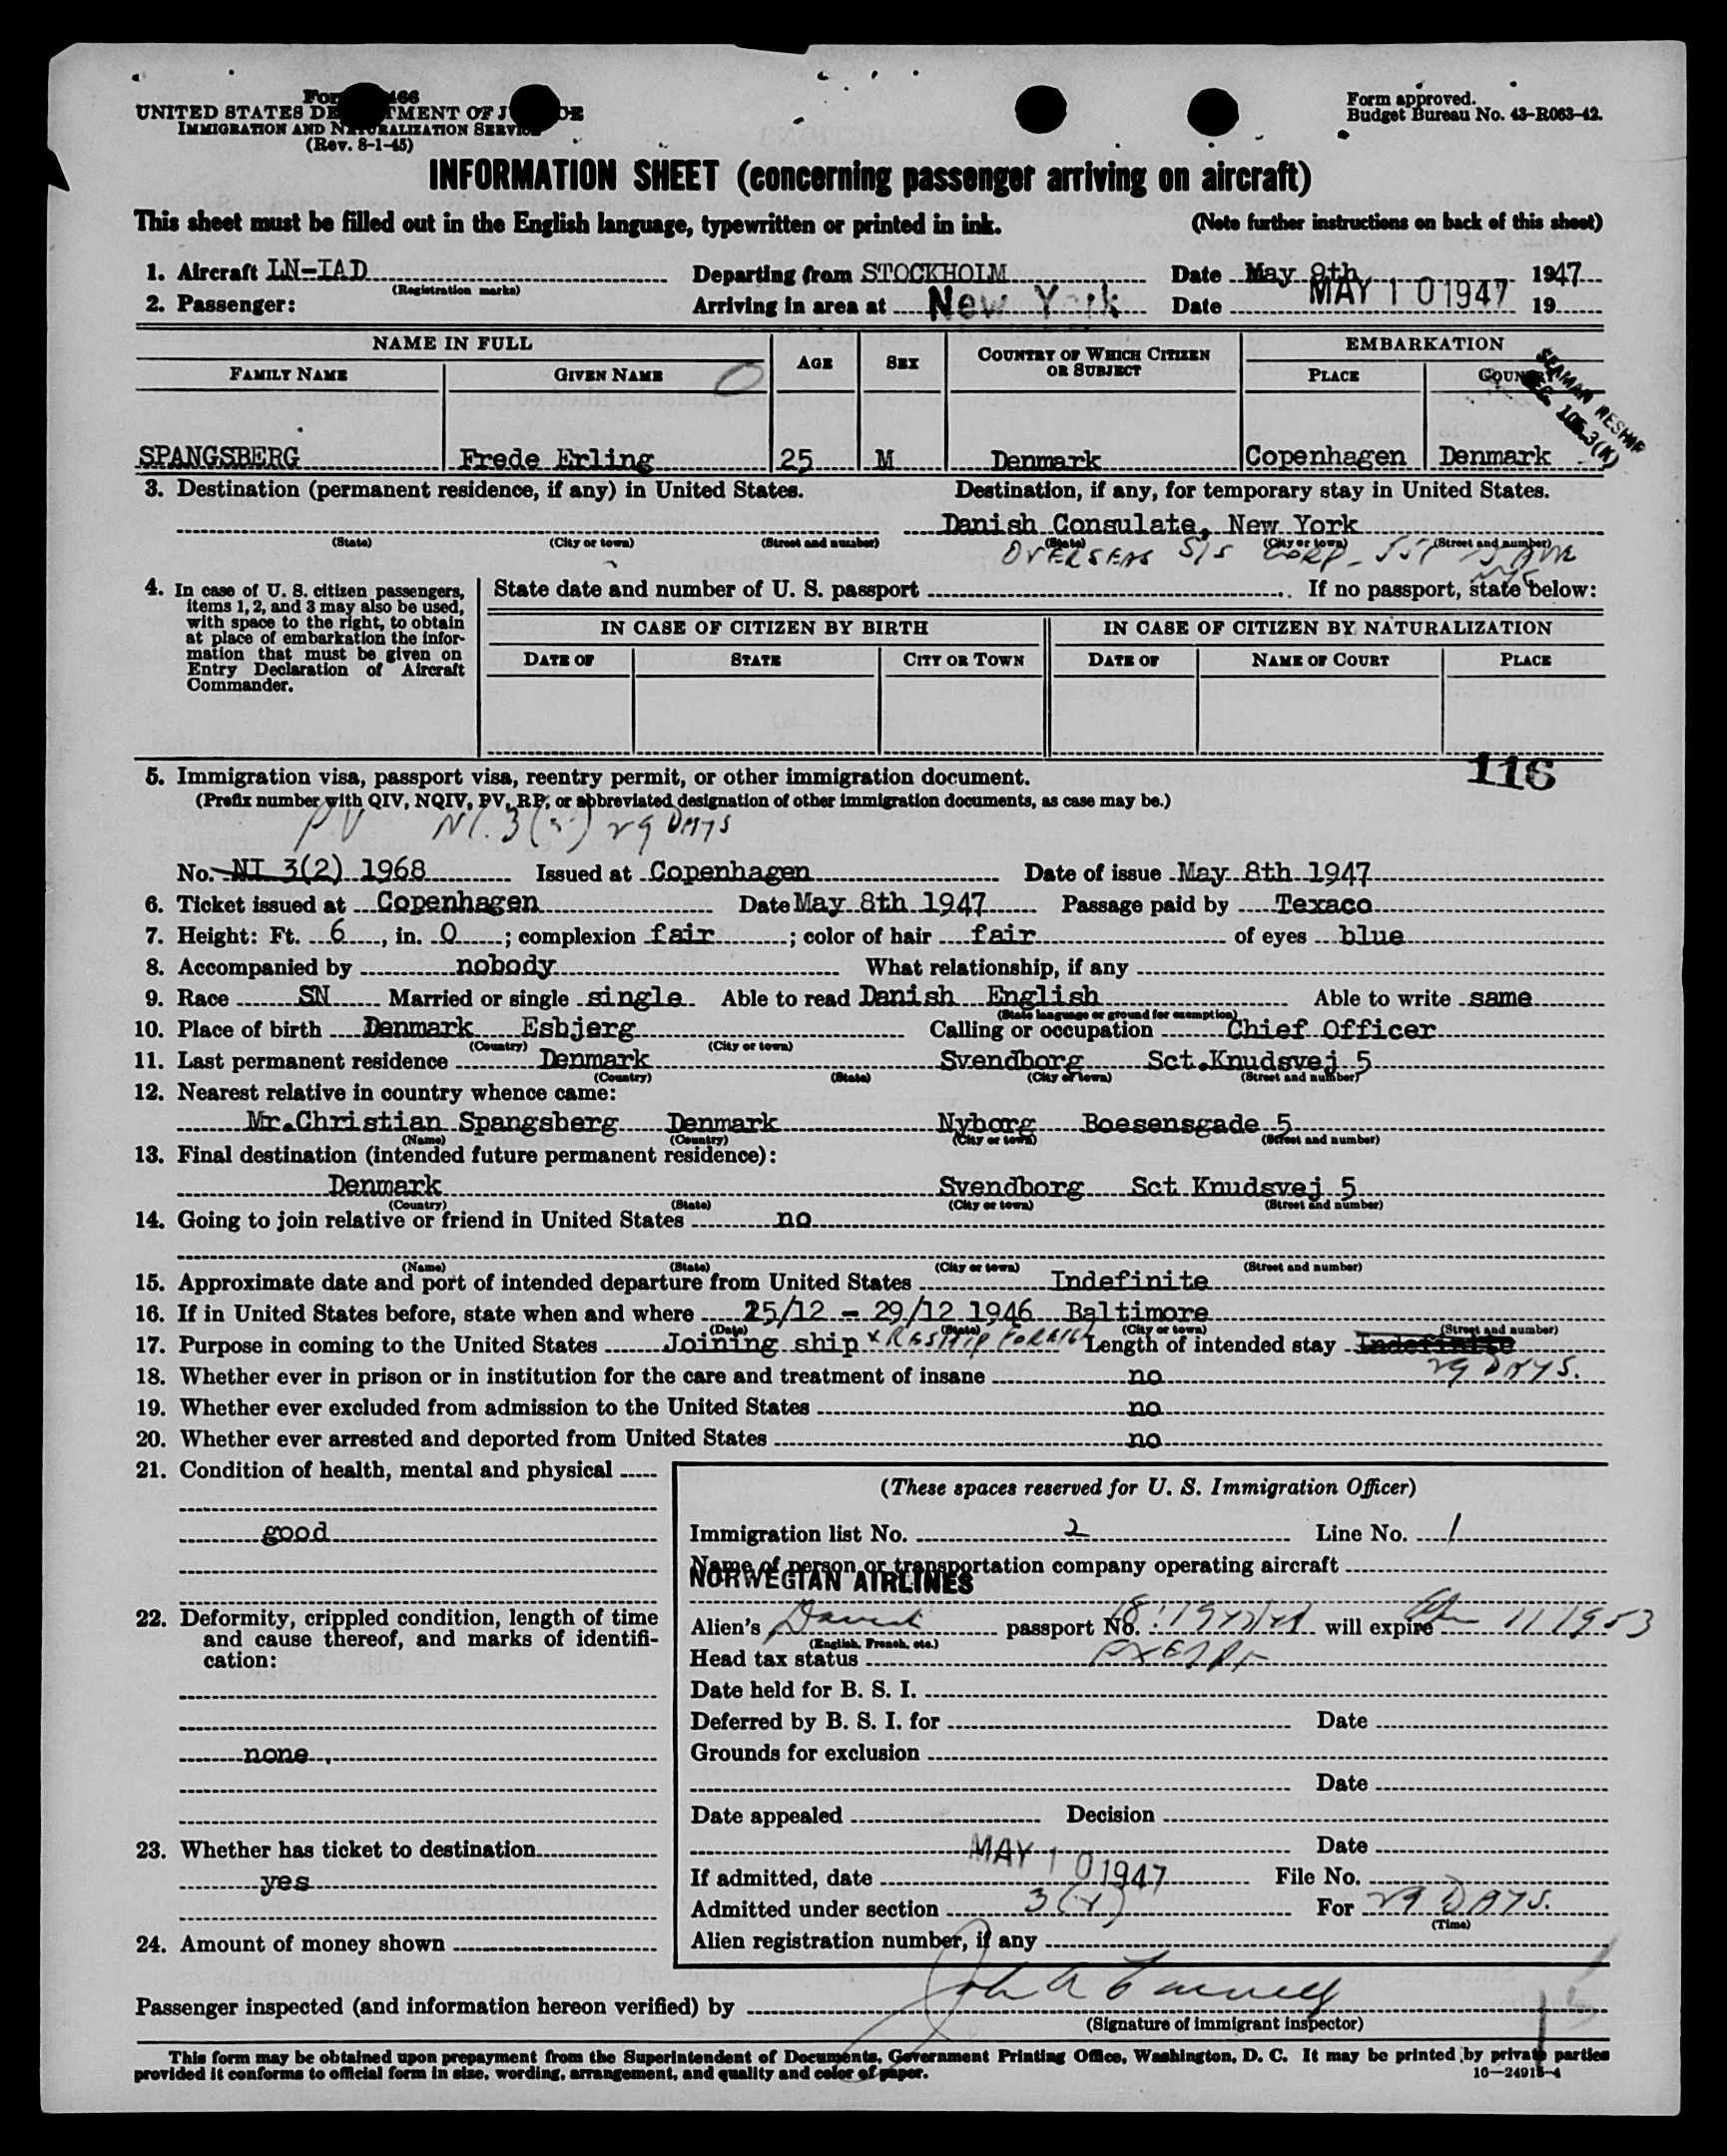 Form 466
UNITED STATES DEPARTMENT OF JUSTICE
IMMIGRATION AND NATURALIZATION SERVICE
(Rev. 8-1-45)
Form approved.
Budget Bureau No. 43-R063-42.
INFORMATION SHEET (concerning passenger arriving on aircraft)
This sheet must be filled out in the English language, typewritten or printed in ink. (Note further instructions on back of this sheet)
1. Aircraft LN-IAD Departing from STOCKHOLM Date May 8th 1947
(Registration marks)
2. Passenger: Arriving in area at New York Date MAY 10 1947 19
NAME IN FULL AGE SEX COUNTRY OF WHICH CITIZEN OR SUBJECT EMBARKATION
FAMILY NAME GIVEN NAME PLACE COUNTRY
SEAMAN RESHIP
SPANGSBERG Frede Erling 25 M Denmark Copenhagen Denmark
3. Destination (permanent residence, if any) in United States. Destination, if any, for temporary stay in United States.
Danish Consulate, New York
(State) (City or town) (Street and number) (State) (City or town) (Street and number)
OVERSEAS S/S CORP - NYC
4. In case of U. S. citizen passengers, items 1, 2, and 3 may also be used, with space to the right, to obtain at place of embarkation the information that must be given on Entry Declaration of Aircraft Commander.
State date and number of U. S. passport If no passport, state below:
IN CASE OF CITIZEN BY BIRTH IN CASE OF CITIZEN BY NATURALIZATION
DATE OF STATE CITY OR TOWN DATE OF NAME OF COURT PLACE
116
5. Immigration visa, passport visa, reentry permit, or other immigration document.
(Prefix number with QIV, NQIV, PV, RP, or abbreviated designation of other immigration documents, as case may be.)
PV NI. 3(2) 29 DAYS
No. NI 3(2) 1968 Issued at Copenhagen Date of issue May 8th 1947
6. Ticket issued at Copenhagen Date May 8th 1947 Passage paid by Texaco
7. Height: Ft. 6, in. 0; complexion fair; color of hair fair of eyes blue
8. Accompanied by nobody What relationship, if any
9. Race SN Married or single single Able to read Danish English Able to write same
(State language or ground for exemption)
10. Place of birth Denmark Esbjerg Calling or occupation Chief Officer
(Country) (City or town)
11. Last permanent residence Denmark Svendborg Sct.Knudsvej 5
(Country) (State) (City or town) (Street and number)
12. Nearest relative in country whence came:
Mr.Christian Spangsberg Denmark Nyborg Boesensgade 5
(Name) (Country) (City or town) (Street and number)
13. Final destination (intended future permanent residence):
Denmark Svendborg Sct Knudsvej 5
(Country) (State) (City or town) (Street and number)
14. Going to join relative or friend in United States no
(Name) (State) (City or town) (Street and number)
15. Approximate date and port of intended departure from United States Indefinite
16. If in United States before, state when and where 25/12 - 29/12 1946 Baltimore
(Date) (State) (City or town) (Street and number)
17. Purpose in coming to the United States Joining ship & RESHIP FOREIGN Length of intended stay Indefinite
29 DAYS.
18. Whether ever in prison or in institution for the care and treatment of insane no
19. Whether ever excluded from admission to the United States no
20. Whether ever arrested and deported from United States no
21. Condition of health, mental and physical
good
22. Deformity, crippled condition, length of time and cause thereof, and marks of identification:
none
23. Whether has ticket to destination
yes
24. Amount of money shown
(These spaces reserved for U. S. Immigration Officer)
Immigration list No. 2 Line No. 1
Name of person or transportation company operating aircraft
NORWEGIAN AIRLINES
Alien's Danish passport No. will expire 11 1953
(English, French, etc.)
Head tax status EXEMPT
Date held for B. S. I.
Deferred by B. S. I. for Date
Grounds for exclusion
Date
Date appealed Decision
Date
If admitted, date MAY 10 1947 File No.
Admitted under section 3(2) For 29 DAYS.
(Time)
Alien registration number, if any
Passenger inspected (and information hereon verified) by John A
(Signature of immigrant inspector)
This form may be obtained upon prepayment from the Superintendent of Documents, Government Printing Office, Washington, D. C. It may be printed by private parties
provided it conforms to official form in size, wording, arrangement, and quality and color of paper. 16-24915-4